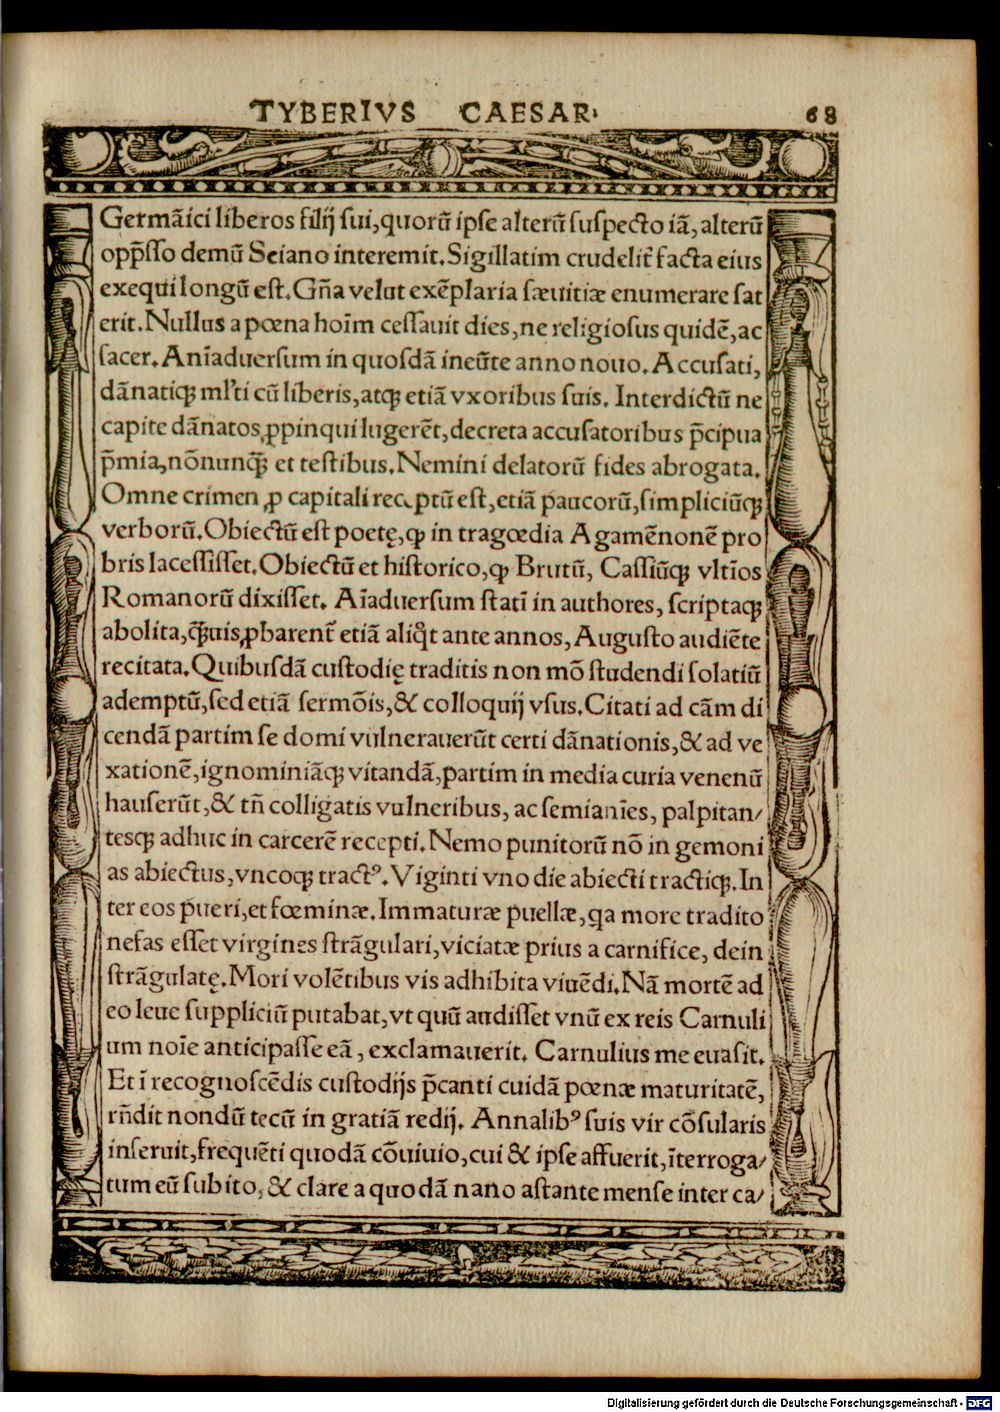 TYBERIVS CAESAR. 68
Germãici liberos filij sui, quorũ ipse alterũ suspecto iã, alterũ
opp̃sso demũ Seiano interemit. Sigillatim crudelit̃ facta eius
exequi longũ est. Gña velut exẽplaria sæuitiæ enumerare sat
erit. Nullus a pœna hoĩm cessauit dies, ne religiosus quidẽ, ac
sacer. Anĩaduersum in quosdã ineũte anno nouo. Accusati,
dãnatiꝗ mĺti cũ liberis, atꝗ etiã vxoribus suis. Interdictũ ne
capite dãnatos, ꝓpinqui lugerẽt, decreta accusatoribus p̃cipua
p̃mia, nõnunꝗ̃ et testibus. Nemini delatorũ fides abrogata.
Omne crimen ꝓ capitali receptũ est, etiã paucorũ, simpliciũꝗ
verborũ. Obiectũ est poetę, ꝙ in tragœdia Agamẽnonẽ pro
bris lacessisset. Obiectũ et historico, ꝙ Brutũ, Cassiũꝗ vltĩos
Romanorũ dixisset. Aĩaduersum statĩ in authores, scriptaꝗ
abolita, ꝗ̃uis, ꝓbarent̃ etiã aliq̃t ante annos, Augusto audiẽte
recitata. Quibusdã custodię traditis non mõ studendi solatiũ
ademptũ, sed etiã sermõis, & colloquij vsus. Citati ad cãm di
cendã partim se domi vulnerauerũt certi dãnationis, & ad ve
xationẽ, ignominiãꝗ vitandã, partim in media curia venenũ
hauserũt, & tñ colligatis vulneribus, ac semianĩes, palpitan/
tesꝗ adhuc in carcerẽ recepti. Nemo punitorũ nõ in gemoni
as abiectus, vncoꝗ tractꝰ. Viginti vno die abiecti tractiꝗ. In
ter eos pueri, et fœminæ. Immaturæ puellæ, qa more tradito
nefas esset virgines strãgulari, viciatæ prius a carnifice, dein
strãgulatę. Mori volẽtibus vis adhibita viuẽdi. Nã mortẽ ad
eo leue suppliciũ putabat, vt quũ audisset vnũ ex reis Carnuli
um noĩe anticipasse eã, exclamauerit. Carnulius me euasit.
Et ĩ recognoscẽdis custodijs p̃canti cuidã pœnæ maturitatẽ,
rñdit nondũ tecũ in gratiã redij. Annalibꝰ suis vir cõsularis
inseruit, frequẽti quodã cõuiuio, cui & ipse affuerit, ĩterroga/
tum eũ subito, & clare a quodã nano astante mense inter ca/
Digitalisierung gefördert durch die Deutsche Forschungsgemeinschaft - DFG